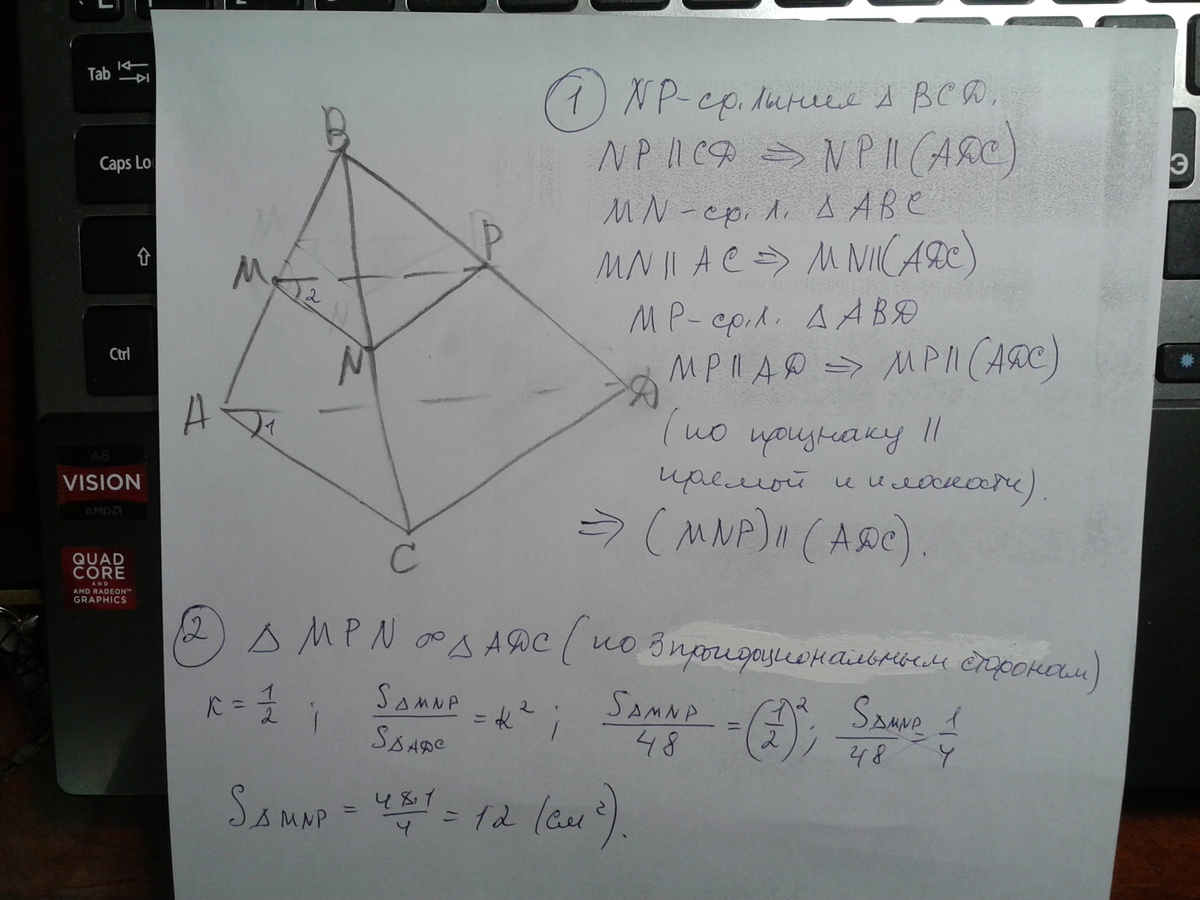 Tab
Caps Lo
Ctrl
Э
A8
VISION
AMD
QUAD
CORE
AND
AMD RADEON™
GRAPHICS
B
M
2
P
N
A
1
D
C
① NP-ср. линия Δ BCD.
NP || CD ⇒ NP || (ADC)
MN - ср. л. Δ ABC
MN || AC ⇒ MN || (ADC)
MP - ср. л. Δ ABD
MP || AD ⇒ MP || (ADC)
(по признаку ||
прямой и плоскости).
⇒ (MNP) || (ADC).
② Δ MPN ∞ Δ ADC (по 3 пропорциональным сторонам)
к = 1/2 ; SΔMNP/SΔADC = k² ; SΔMNP/48 = (1/2)² ; SΔMNP/48 = 1/4
SΔMNP = 48·1/4 = 12 (см²).